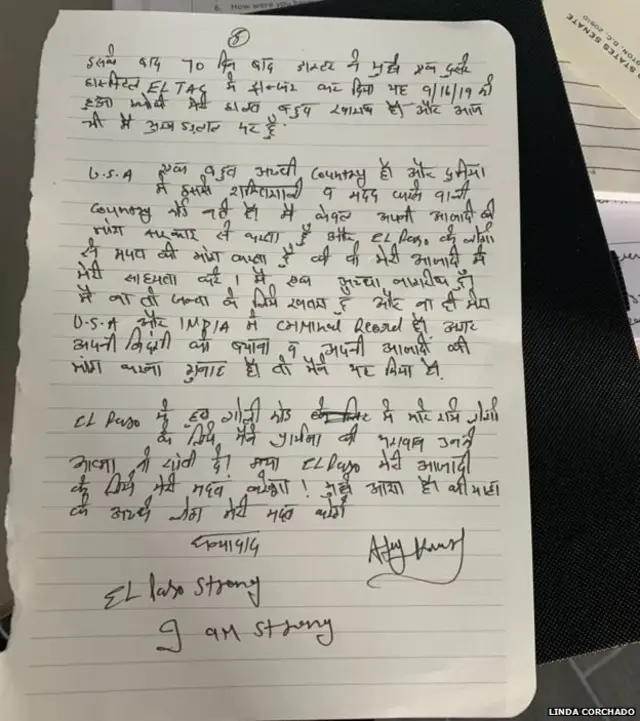 6. How were you h
STATES SENATE
TON, D.C. 20510
8
इसके बाद 70 दिन बाद डाक्टर ने मुझे एक दुसरे
हास्पिटल ELTAC में कर दिया यह 9/16/19 को
हुआ क्योकी मेरी हालत बहुत खराब है। और आज
भी मै भुख हडताल पर हूँ.
U.S.A एक बहुत अच्छी Country है। और दुनिया
में इससे शक्तिशाली व मदद करने वाली
Country कोई नही है। मै केवल अपनी आजादी की
मांग सरकार से करता हूँ और EL Paso के लोगो
से मदद की मांग करता हूँ की वो मेरी आजादी में
मेरी साहयता करे। मै एक अच्छा नागरीक हूँ।
मै ना तो जनता के लिये खतरा हूँ और ना ही मेरा
U.S.A और INDIA में Criminal Record है। अगर
अपनी जिंदगी को बचाना व अपनी आजादी की
मांग करना गुनाह है। तो मैने यह किया है.
EL Paso में हुए गोली कांड में मारे गये लोगो
के लिये मैने प्रार्थना की भगवान उनकी
आत्मा को शांती दे। क्या EL Paso मेरी आजादी
के लिये मेरी मदद करेगा! मुझे आशा है। की यहा
के अच्छे लोग मेरी मदद करेगे
धन्यावाद
Ajay Kumar
EL Paso Strong
I am strong
LINDA CORCHADO